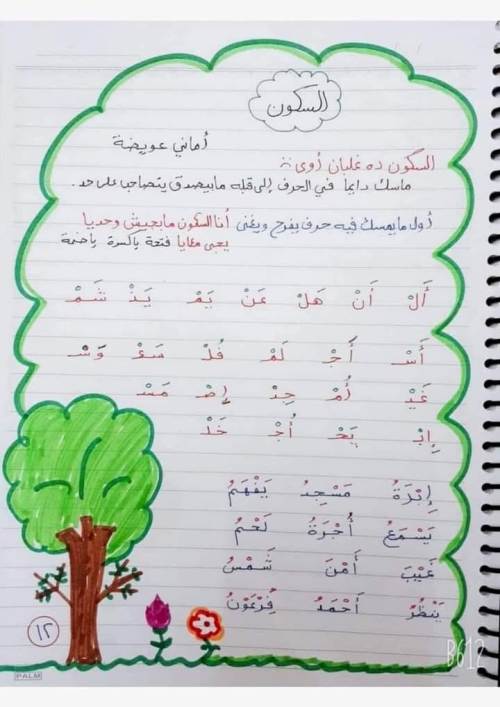 السكون
أماني عويضة
السكون ده غلبان أوى
ماسك دايما في الحرف إلى قبله مابيصدق يتصاحب على حد.
أول ما يمسك فيه حرف يفرح ويغنى أنا السكون مابجيش وحديا
يجى معايا فتحة ياكسرة ياضمة
أَلْ أَنْ هَلْ عَنْ يَمْ يَذْ شَمْ
أَسْ أَجْ لَمْ فُلْ سَعْ وَسْ
عَيْ أُمْ حِدْ إِصْ مَسْ
إِبْ بَحْ أُجْ خَدْ
إِبْرَةُ مَسْجِدُ يَفْهَمُ
يَسْمَعُ أُجْرَةُ لَحْمُ
غَيْبَ أَمْنَ شَمْسُ
يَنْظُرُ أَحْمَدُ فِرْعَوْنُ
١٢
PALM
B612